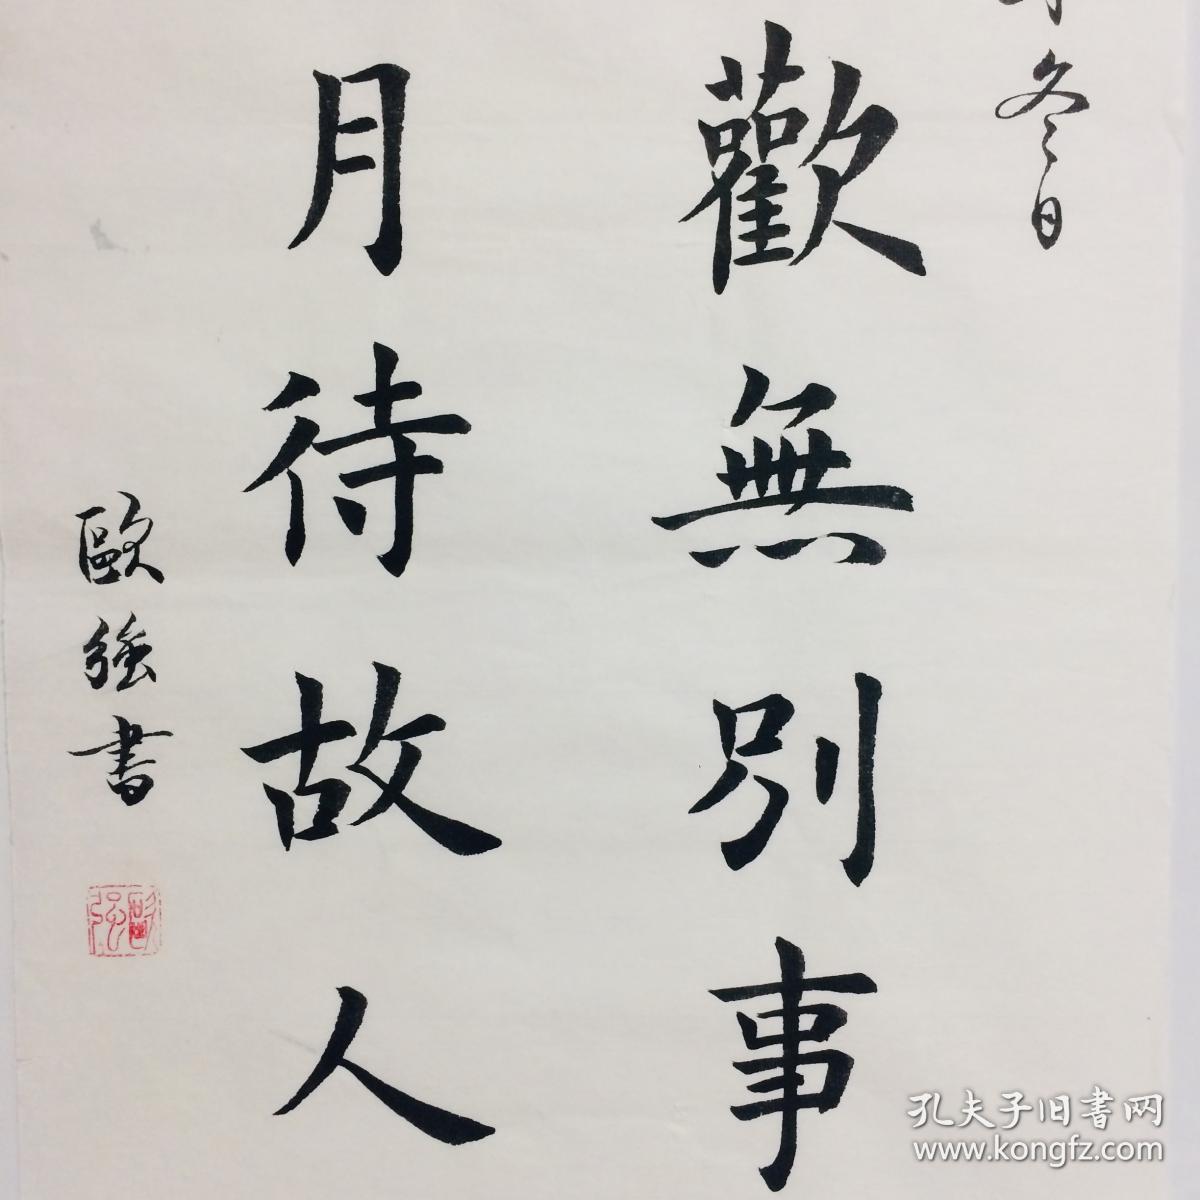 冬日
歡無別事
月待故人
歐強書
歐強
孔夫子旧书网
www.kongfz.com